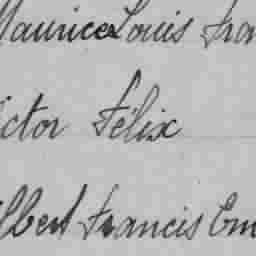 Maurice Louis Fran
ictor Félix
lbert Francis Em